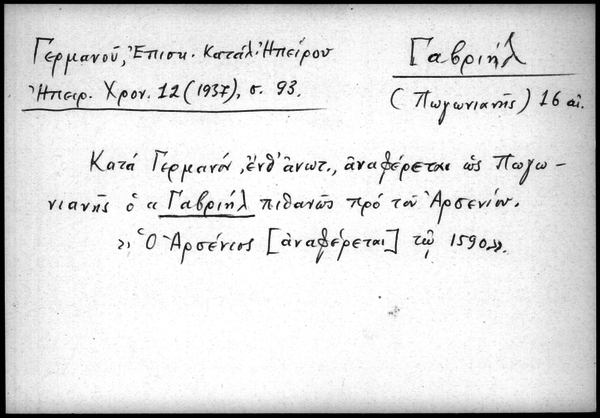 Γερμανοῦ, Ἐπισκ. Κατάλ. Ἠπείρου
Ἠπειρ. Χρον. 12 (1937), σ. 93.
Γαβριήλ
(Πωγωνιανῆς) 16 αἰ.
Κατά Γερμανόν, ἐνθ' ἀνωτ., ἀναφέρεται ὡς Πωγω-
νιανῆς ὁ α Γαβριήλ πιθανῶς πρό τοῦ Ἀρσενίου.
» Ὁ Ἀρσένιος [ἀναφέρεται] τῷ 1590».